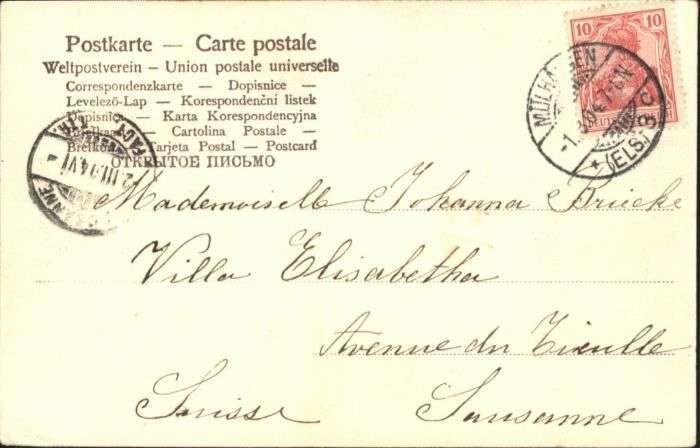 Postkarte — Carte postale
Weltpostverein — Union postale universelle
Correspondenzkarte — Dopisnice —
Levelező-Lap — Korespondenční listek
Dopisnica — Karta Korespondencyjna
— Cartolina Postale —
Brefkort — Tarjeta Postal — Postcard
ОТКРЫТОЕ ПИСЬМО
10 10
MÜLHAUSEN
(ELS.) BC
2.III.04.VI
Mademoiselle Johanna Brücke
Villa Elisabetha
Avenue du Tieulle
Suisse Lausanne